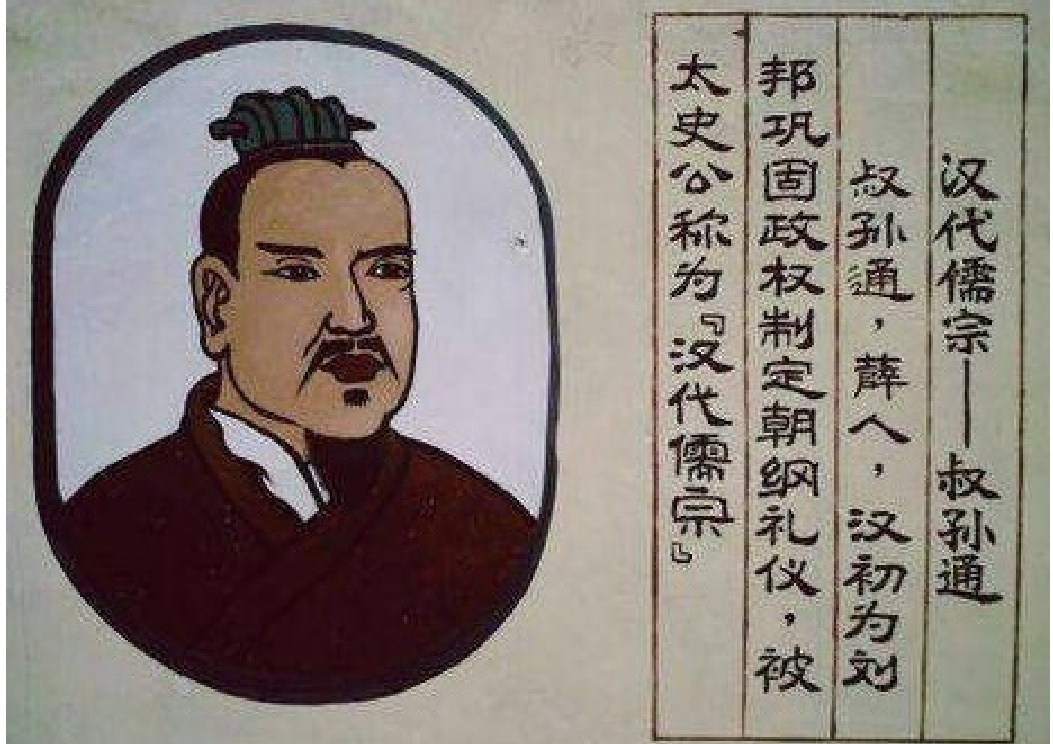 汉代儒宗——叔孙通
叔孙通，薛人，汉初为刘
邦巩固政权制定朝纲礼仪，被
太史公称为『汉代儒宗』